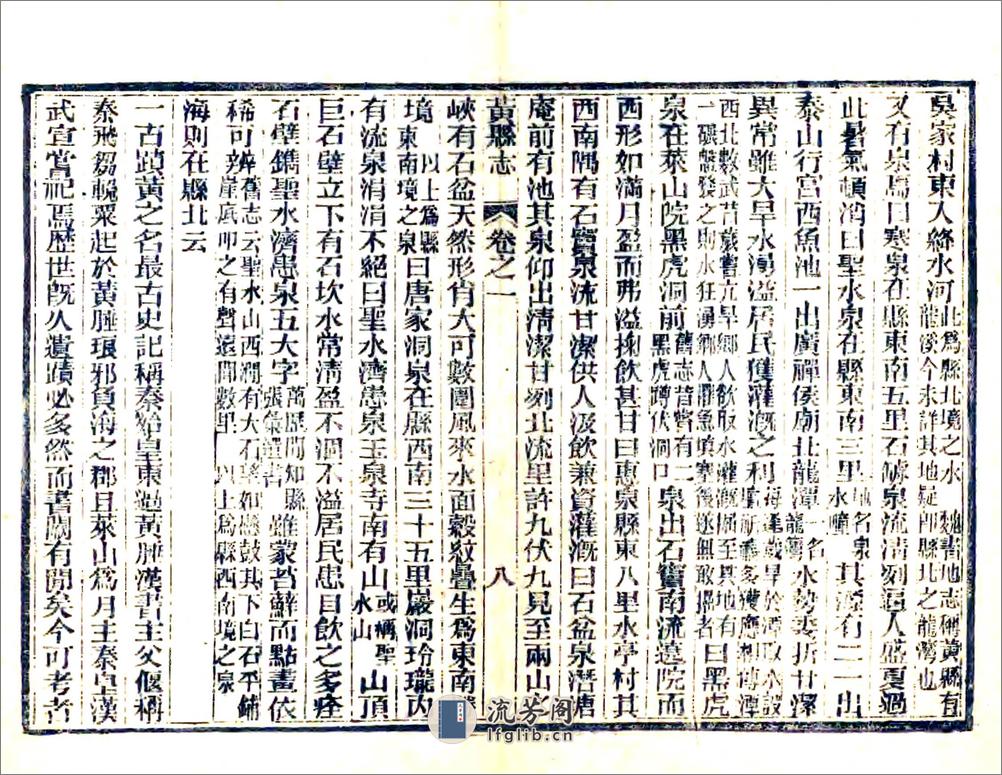 吳家村東入絳水河此爲縣北境之水　魏書地志稱黃縣有龍溪今未詳其地疑卽縣北之龍灣也
又有泉焉曰寒泉在縣東南五里石罅泉流清冽逼人盛夏過
此暑氣頓消曰聖水泉在縣東南三里地名泉水疃其源有二一出
泰山行宮西魚池一出廣禪侯廟北龍潭一名龍灣水勢委折甘潔
異常雖大旱水湧溢居民獲灌漑之利每逢歲旱於潭取水設壇祈禱多獲應相傳潭
西北數武昔歲嘗亢旱鄉人飲取水灌漑掘至其地有一碾盤發之則水狂湧鄉人懼急塡塞後遂無敢掘者曰黑虎
泉在萊山院黑虎洞前舊志昔嘗有二黑虎蹲伏洞口泉出石竇南流遶院而
西形如滿月盈而弗溢掬飲甚甘曰惠泉縣東八里水亭村其
西南隅有石竇泉流甘潔供人汲飲兼資灌漑曰石盆泉潛唐
庵前有池其泉仰出清潔甘冽北流里許九伏九見至兩山之
黃縣志　卷之一　八
峽有石盆天然形肖大可數圍風來水面縠紋疊生爲東南
境以上爲縣東南境之泉曰唐家洞泉在縣西南三十五里巖洞玲瓏內
有流泉涓涓不絕曰聖水濟患泉玉泉寺南有山或稱聖水山山頂
巨石壁立下有石坎水常清盈不涸不溢居民患目飲之多痊
石壁鐫聖水濟患泉五大字萬歷間知縣張彙選書雖蒙苔蘚而點畫依
稀可辨舊志云聖水山西澗有大石擘如懸鼓其下白石平鋪崖底叩之有聲遠聞數里　以上爲縣西南境之泉
海則在縣北云
一古蹟黃之名最古史記稱秦始皇東過黃腄漢書主父偃稱
秦飛芻輓粟起於黃腄琅邪負海之郡且萊山爲月主秦皇漢
武宣嘗祀焉歷世旣久遺蹟必多然而書闕有間矣今可考者
流芳阁
lfglib.cn